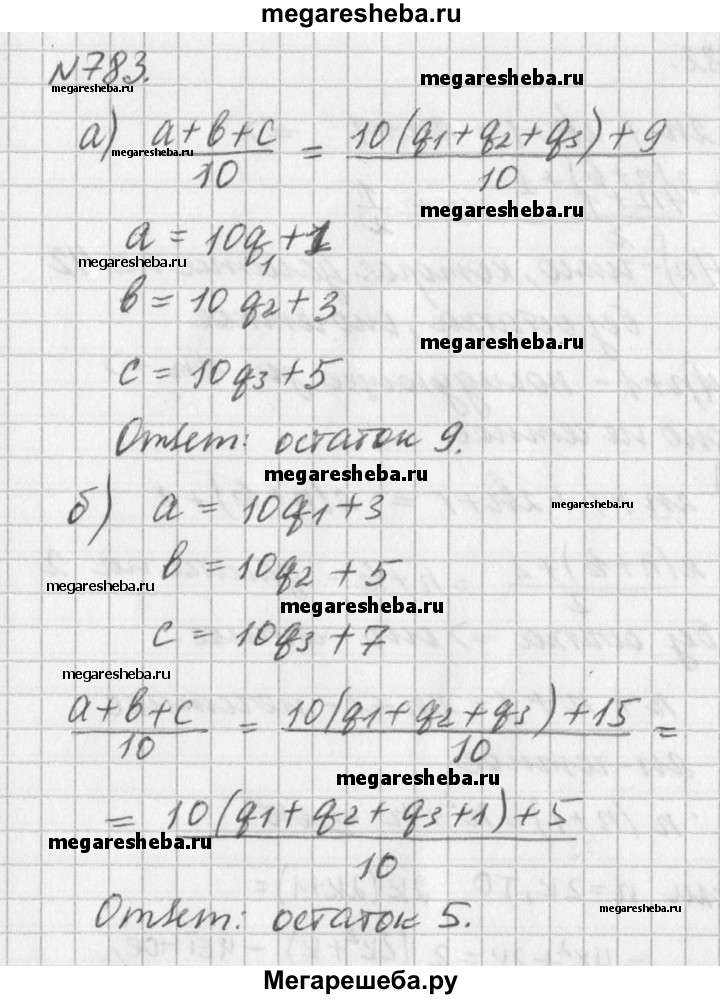 megaresheba.ru
№783.
megaresheba.ru
megaresheba.ru
а) (a+в+c)/10 = (10(q1+q2+q3)+9)/10
megaresheba.ru
megaresheba.ru
a = 10q1+1
megaresheba.ru
в = 10q2+3
megaresheba.ru
c = 10q3+5
Ответ: остаток 9.
megaresheba.ru
б) a = 10q1+3
megaresheba.ru
в = 10q2+5
megaresheba.ru
megaresheba.ru
c = 10q3+7
megaresheba.ru
(a+в+c)/10 = (10(q1+q2+q3)+15)/10 =
megaresheba.ru
= (10(q1+q2+q3+1)+5)/10
megaresheba.ru
Ответ: остаток 5.
megaresheba.ru
Мегарешеба.ру